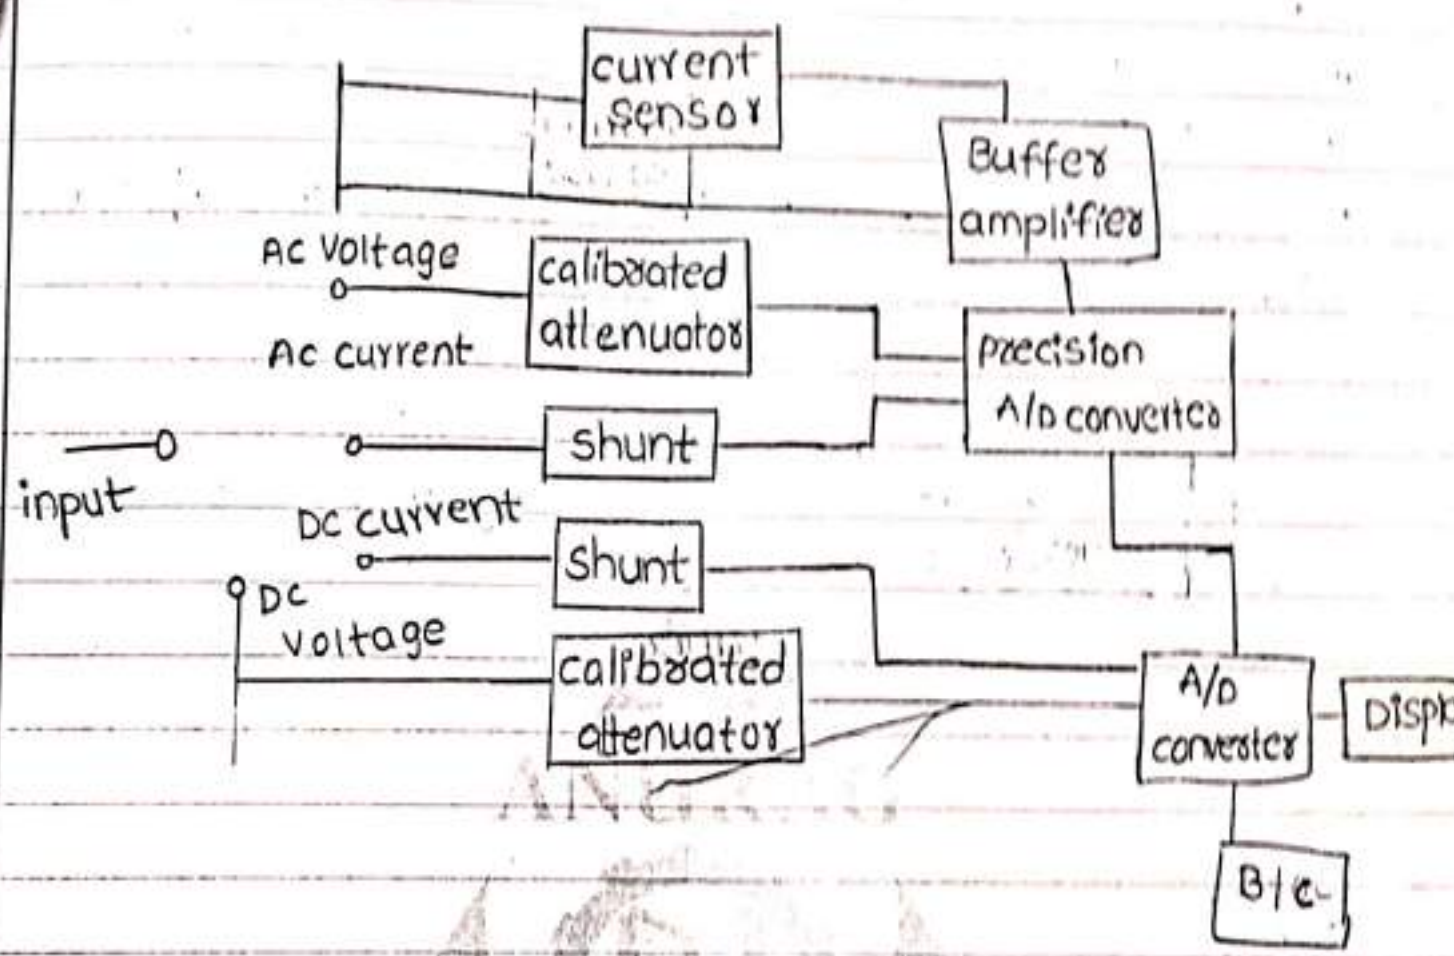 current
sensor
Buffer
amplifier
AC Voltage
calibrated
attenuator
AC current
precision
A/D converter
shunt
input
DC current
shunt
DC
voltage
calibrated
attenuator
A/D
converter
Displ